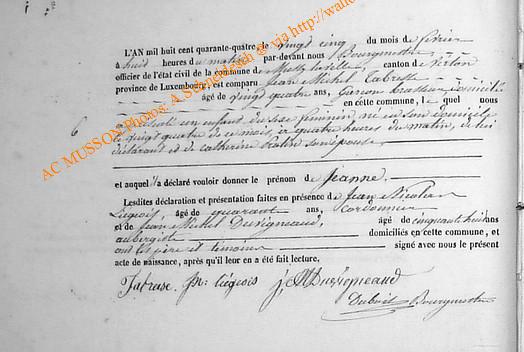 L'AN mil huit cent quarante-quatre, le vingt cinq du mois de février
à huit heures du matin par-devant nous Bourgmestre
officier de l'état civil de la commune de Musson canton de Virton
province de Luxembourg, est comparu Jean Michel
âgé de vingt quatre ans, garçon brasseur domicilié
en cette commune, le quel nous
6 a présenté un enfant du sexe féminin né en son domicile
le vingt quatre de ce mois, à quatre heures du matin, de lui
déclarant et de Catherine son épouse,
et auquel il a déclaré vouloir donner le prénom de Jeanne.
Lesdites déclaration et présentation faites en présence de Jean Nicolas
Liégeois, âgé de quarante ans, cordonnier
et de Jean Michel Duvigneaud, âgé de cinquante huit ans
aubergiste domiciliés en cette commune, et
ont les père et témoins signé avec nous le présent
acte de naissance, après qu'il leur en a été fait lecture.
liégeois Duvigneaud
Bourgmestre
AC MUSSON Photos: A. Schneidesch @ via http://